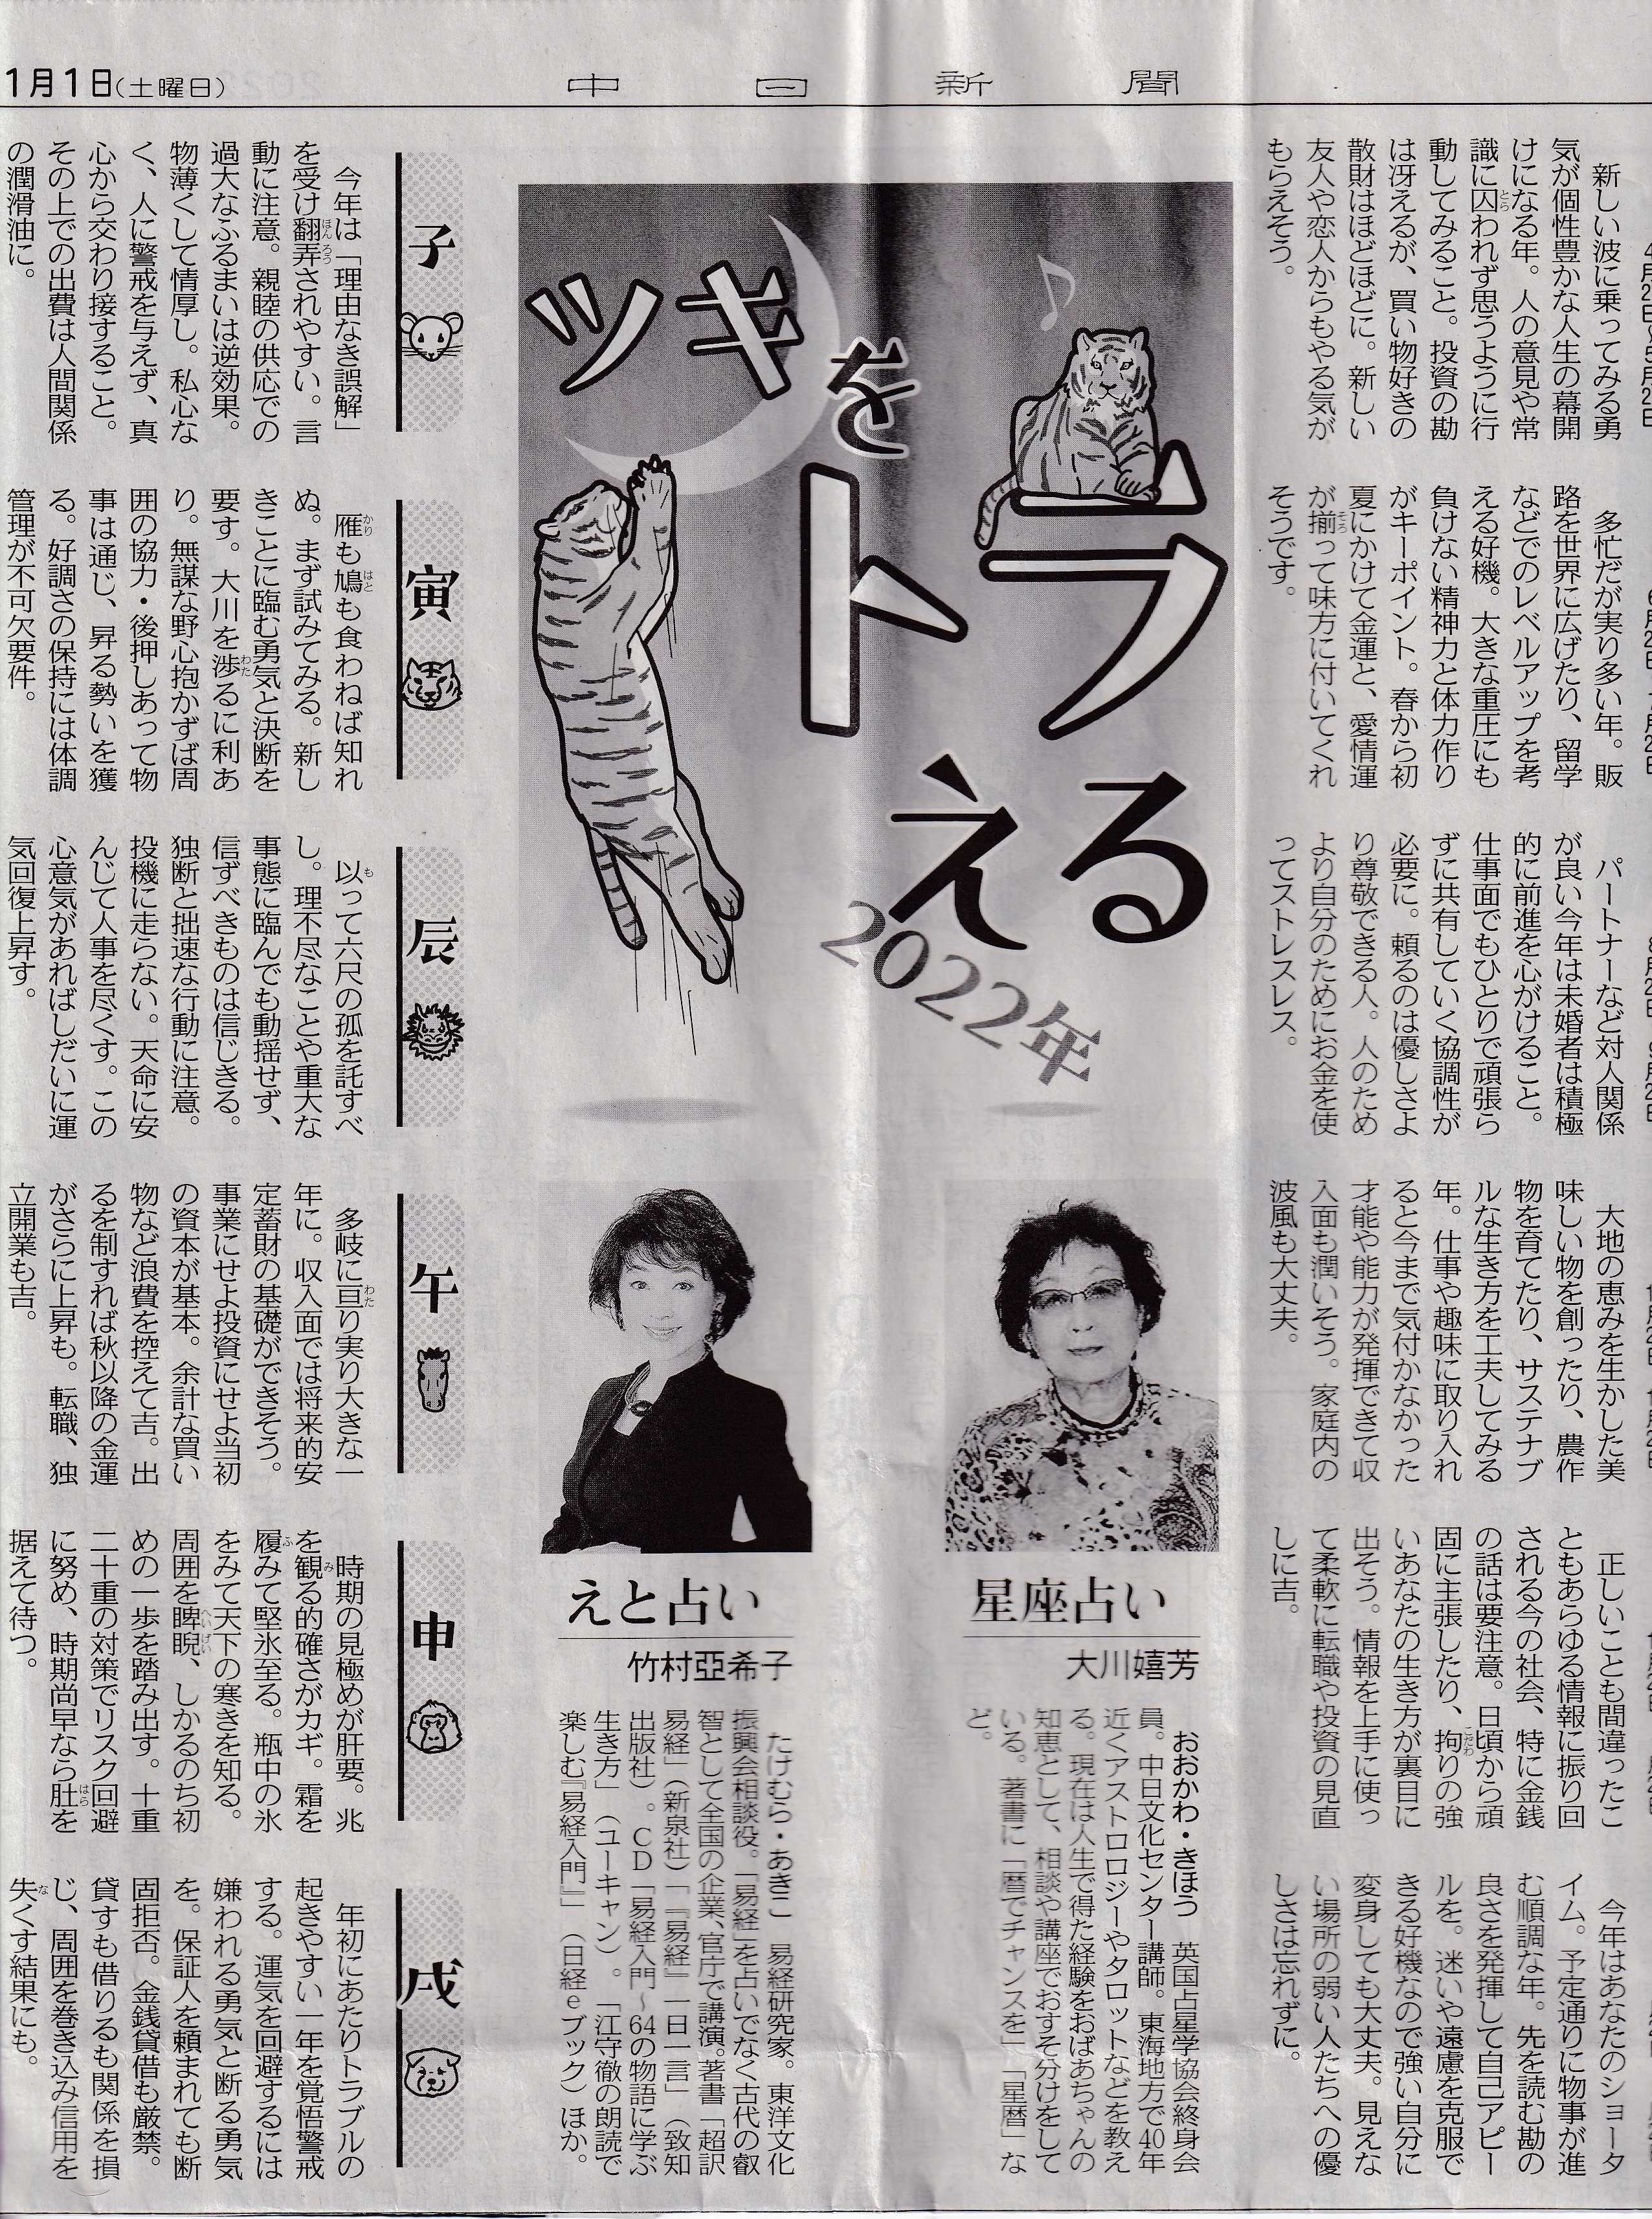 1月1日(土曜日)
中日新聞
新しい波に乗ってみる勇
気が個性豊かな人生の幕開
けになる年。人の意見や常
識に囚われず思うように行
動してみること。投資の勘
は冴えるが、買い物好きの
散財はほどほどに。新しい
友人や恋人からもやる気が
もらえそう。
多忙だが実り多い年。販
路を世界に広げたり、留学
などでのレベルアップを考
える好機。大きな重圧にも
負けない精神力と体力作り
がキーポイント。春から初
夏にかけて金運と、愛情運
が揃って味方に付いてくれ
そうです。
パートナーなど対人関係
が良い今年は未婚者は積極
的に前進を心がけること。
仕事面でもひとりで頑張ら
ずに共有していく協調性が
必要に。頼るのは優しさよ
り尊敬できる人。人のため
より自分のためにお金を使
ってストレスレス。
大地の恵みを生かした美
味しい物を創ったり、農作
物を育てたり、サステナブ
ルな生き方を工夫してみる
年。仕事や趣味に取り入れ
ると今まで気付かなかった
才能や能力が発揮できて収
入面も潤いそう。家庭内の
波風も大丈夫。
正しいことも間違ったこ
ともあらゆる情報に振り回
される今の社会、特に金銭
の話は要注意。日頃から頑
固に主張したり、拘りの強
いあなたの生き方が裏目に
出そう。情報を上手に使っ
て柔軟に転職や投資の見直
しに吉。
今年はあなたのショータ
イム。予定通りに物事が進
む順調な年。先を読む勘の
良さを発揮して自己アピー
ルを。迷いや遠慮を克服で
きる好機なので強い自分に
変身しても大丈夫。見えな
い場所の弱い人たちへの優
しさは忘れずに。
ツキを
トラ
える
2022年
星座占い
大川嬉芳
おおかわ・きほう　英国占星学協会終身会
員。中日文化センター講師。東海地方で40年
近くアストロロジーやタロットなどを教え
る。現在は人生で得た経験をおばあちゃんの
知恵として、相談や講座でおすそ分けをして
いる。著書に「暦でチャンスを」「星暦」な
ど。
えと占い
竹村亞希子
たけむら・あきこ　易経研究家。東洋文化
振興会相談役。「易経」を占いでなく古代の叡
智として全国の企業、官庁で講演。著書「超訳
易経」(新泉社)「『易経』一日一言」(致知
出版社)。CD「易経入門～64の物語に学ぶ
生き方」(ユーキャン)。「江守徹の朗読で
楽しむ『易経入門』」(日経eブック)ほか。
子
今年は「理由なき誤解」
を受け翻弄されやすい。言
動に注意。親睦の供応での
過大なふるまいは逆効果。
物薄くして情厚し。私心な
く、人に警戒を与えず、真
心から交わり接すること。
その上での出費は人間関係
の潤滑油に。
寅
雁も鳩も食わねば知れ
ぬ。まず試みてみる。新し
きことに臨む勇気と決断を
要す。大川を渉るに利あ
り。無謀な野心抱かずば周
囲の協力・後押しあって物
事は通じ、昇る勢いを獲
る。好調さの保持には体調
管理が不可欠要件。
辰
以って六尺の孤を託すべ
し。理不尽なことや重大な
事態に臨んでも動揺せず、
信ずべきものは信じきる。
独断と拙速な行動に注意。
投機に走らない。天命に安
んじて人事を尽くす。この
心意気があればしだいに運
気回復上昇す。
午
多岐に亘り実り大きな一
年に。収入面では将来的安
定蓄財の基礎ができそう。
事業にせよ投資にせよ当初
の資本が基本。余計な買い
物など浪費を控えて吉。出
るを制すれば秋以降の金運
がさらに上昇も。転職、独
立開業も吉。
申
時期の見極めが肝要。兆
を観る的確さがカギ。霜を
履みて堅氷至る。瓶中の氷
をみて天下の寒きを知る。
周囲を睥睨、しかるのち初
めの一歩を踏み出す。十重
二十重の対策でリスク回避
に努め、時期尚早なら肚を
据えて待つ。
戌
年初にあたりトラブルの
起きやすい一年を覚悟警戒
する。運気を回避するには
嫌われる勇気と断る勇気
を。保証人を頼まれても断
固拒否。金銭貸借も厳禁。
貸すも借りるも関係を損
じ、周囲を巻き込み信用を
失くす結果にも。